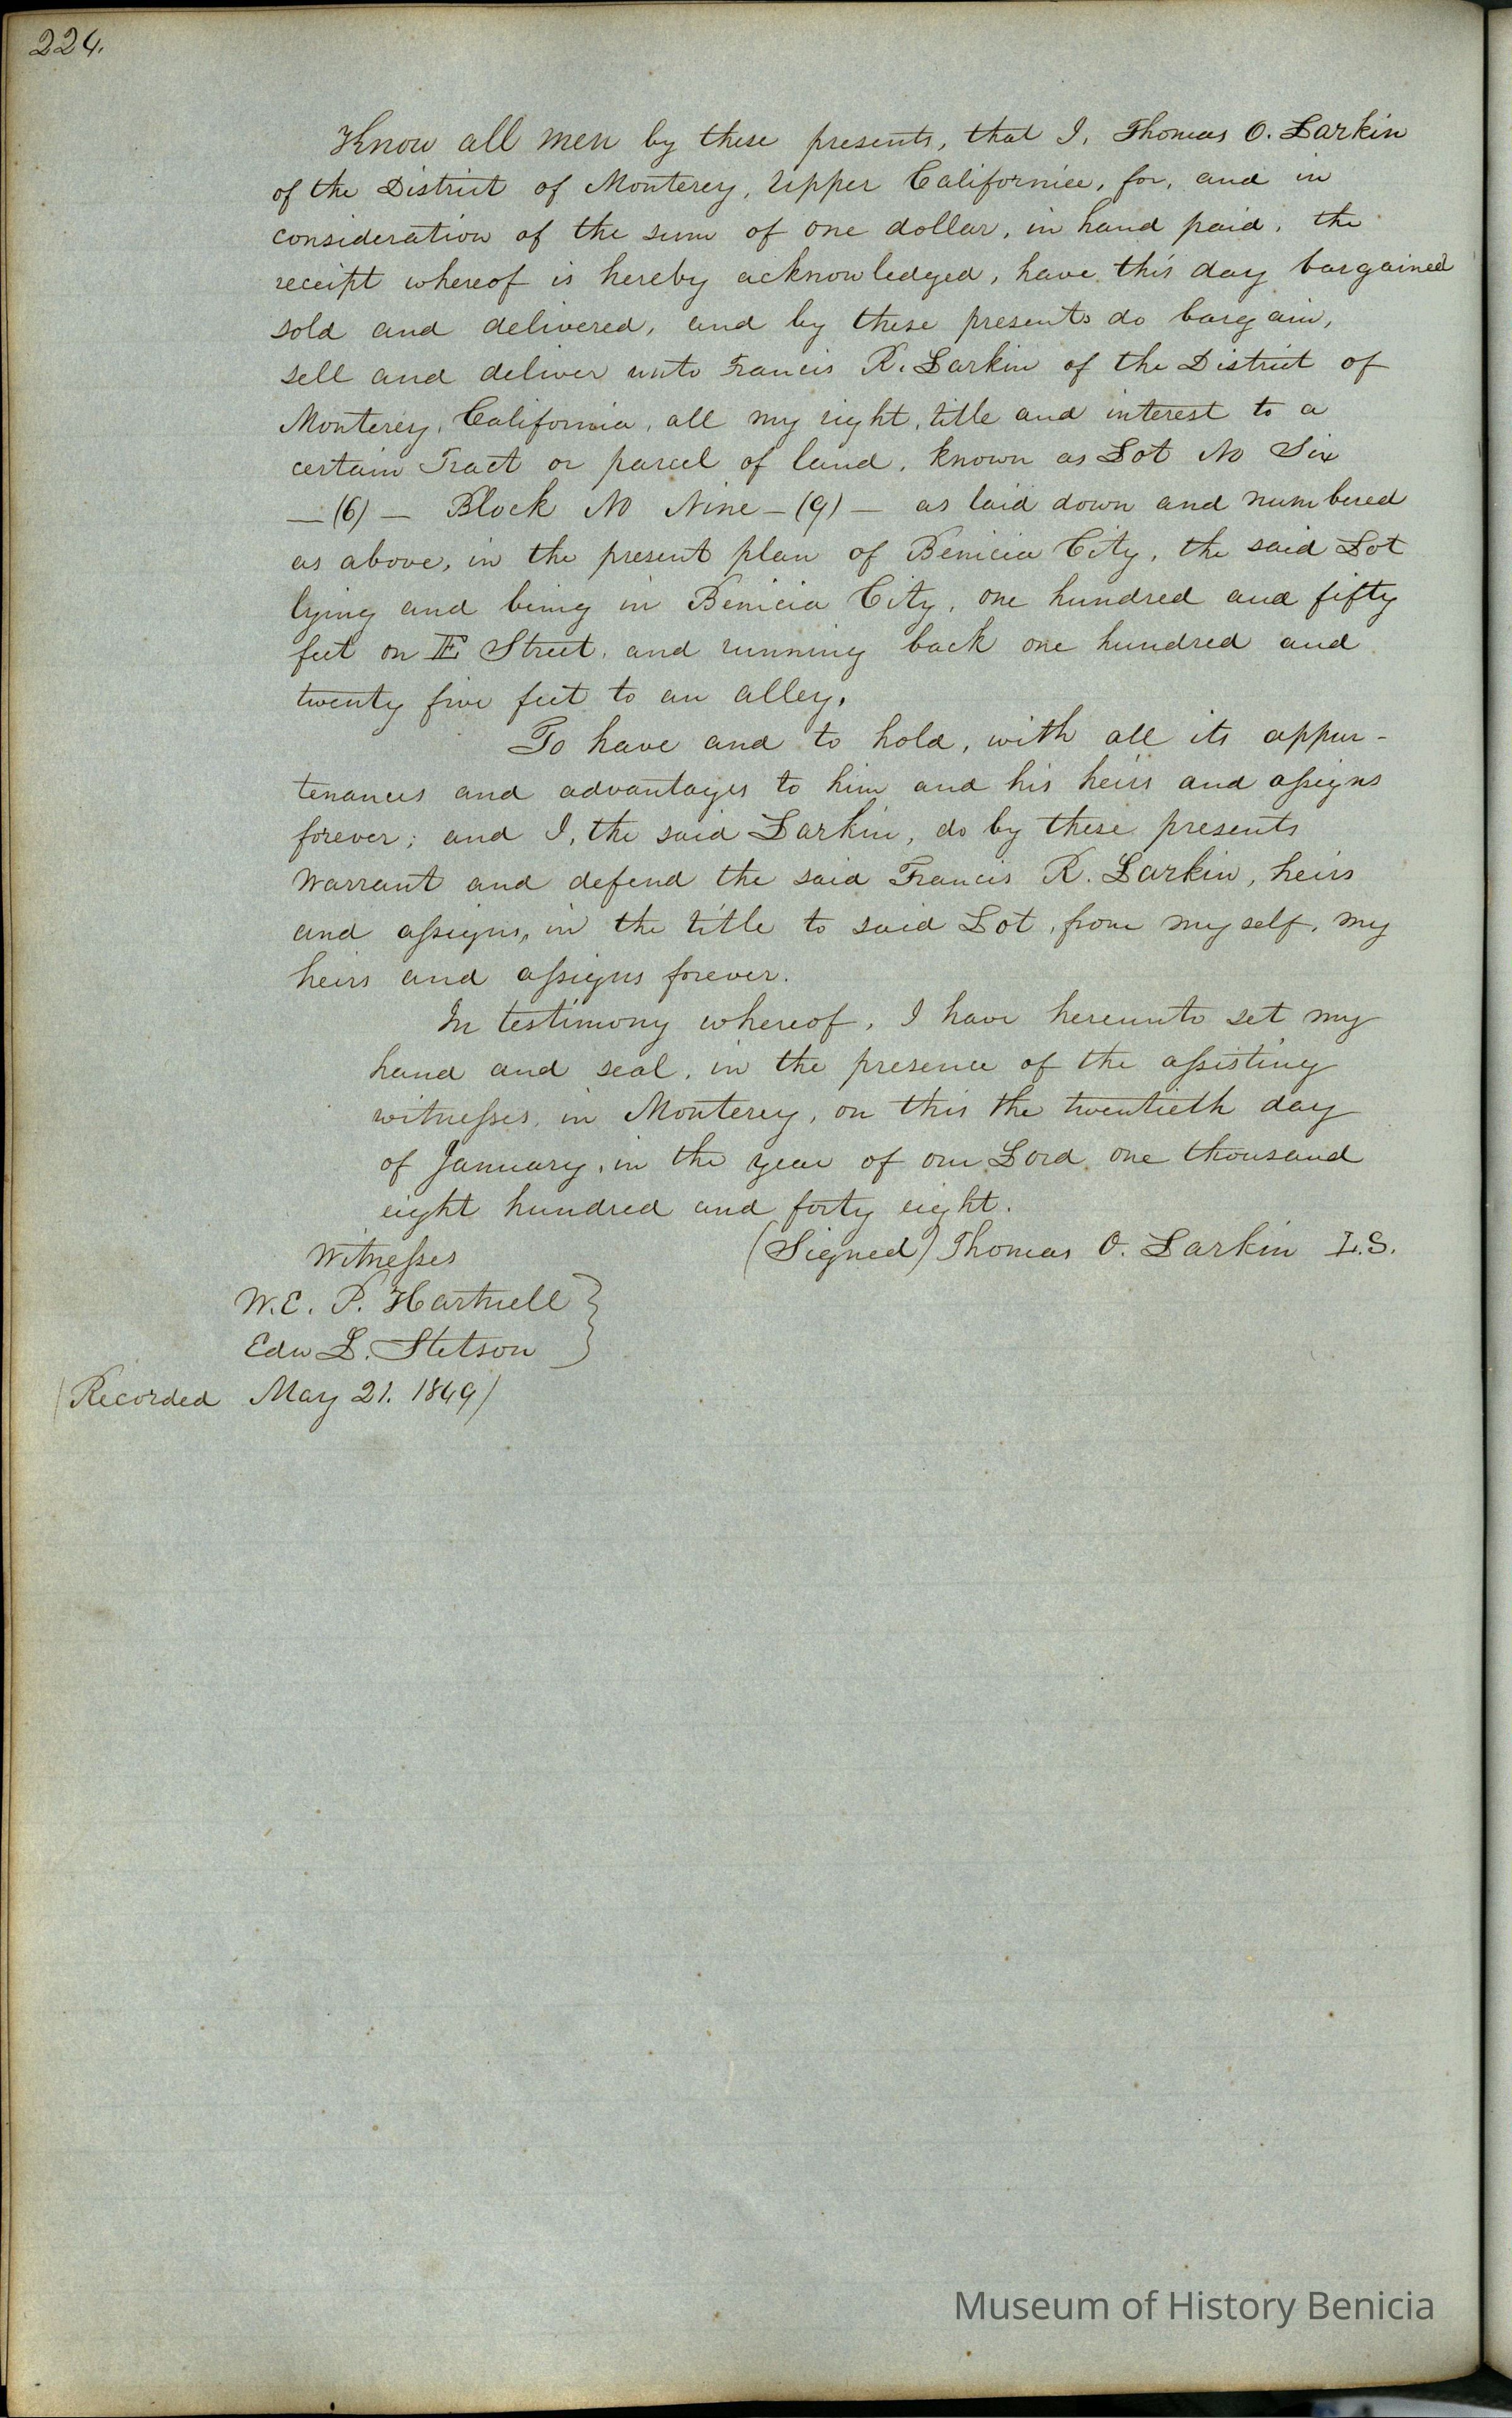 224.
Know all men by these presents, that I, Thomas O. Larkin
of the District of Monterey, Upper California, for, and in
consideration of the sum of one dollar, in hand paid, the
receipt whereof is hereby acknowledged, have this day bargained
sold and delivered, and by these presents do bargain,
sell and deliver unto Francis R. Larkin of the District of
Monterey, California, all my right, title and interest to a
certain Tract or parcel of land, known as Lot No Six
— (6) — Block No Nine — (9) — as laid down and numbered
as above, in the present plan of Benicia City, the said Lot
lying and being in Benicia City, one hundred and fifty
feet on E Street, and running back one hundred and
twenty five feet to an alley.
To have and to hold, with all its appur-
tenances and advantages to him and his heirs and assigns
forever; and I, the said Larkin, do by these presents
Warrant and defend the said Francis R. Larkin, heirs
and assigns, in the title to said Lot, from myself, my
heirs and assigns forever.
In testimony whereof, I have hereunto set my
hand and seal, in the presence of the assisting
witnesses, in Monterey, on this the twentieth day
of January, in the year of our Lord one thousand
eight hundred and forty eight.
Witnesses (Signed) Thomas O. Larkin L.S.
W.E. P. Hartnell
Edw L. Stetson
(Recorded May 21. 1849)
Museum of History Benicia